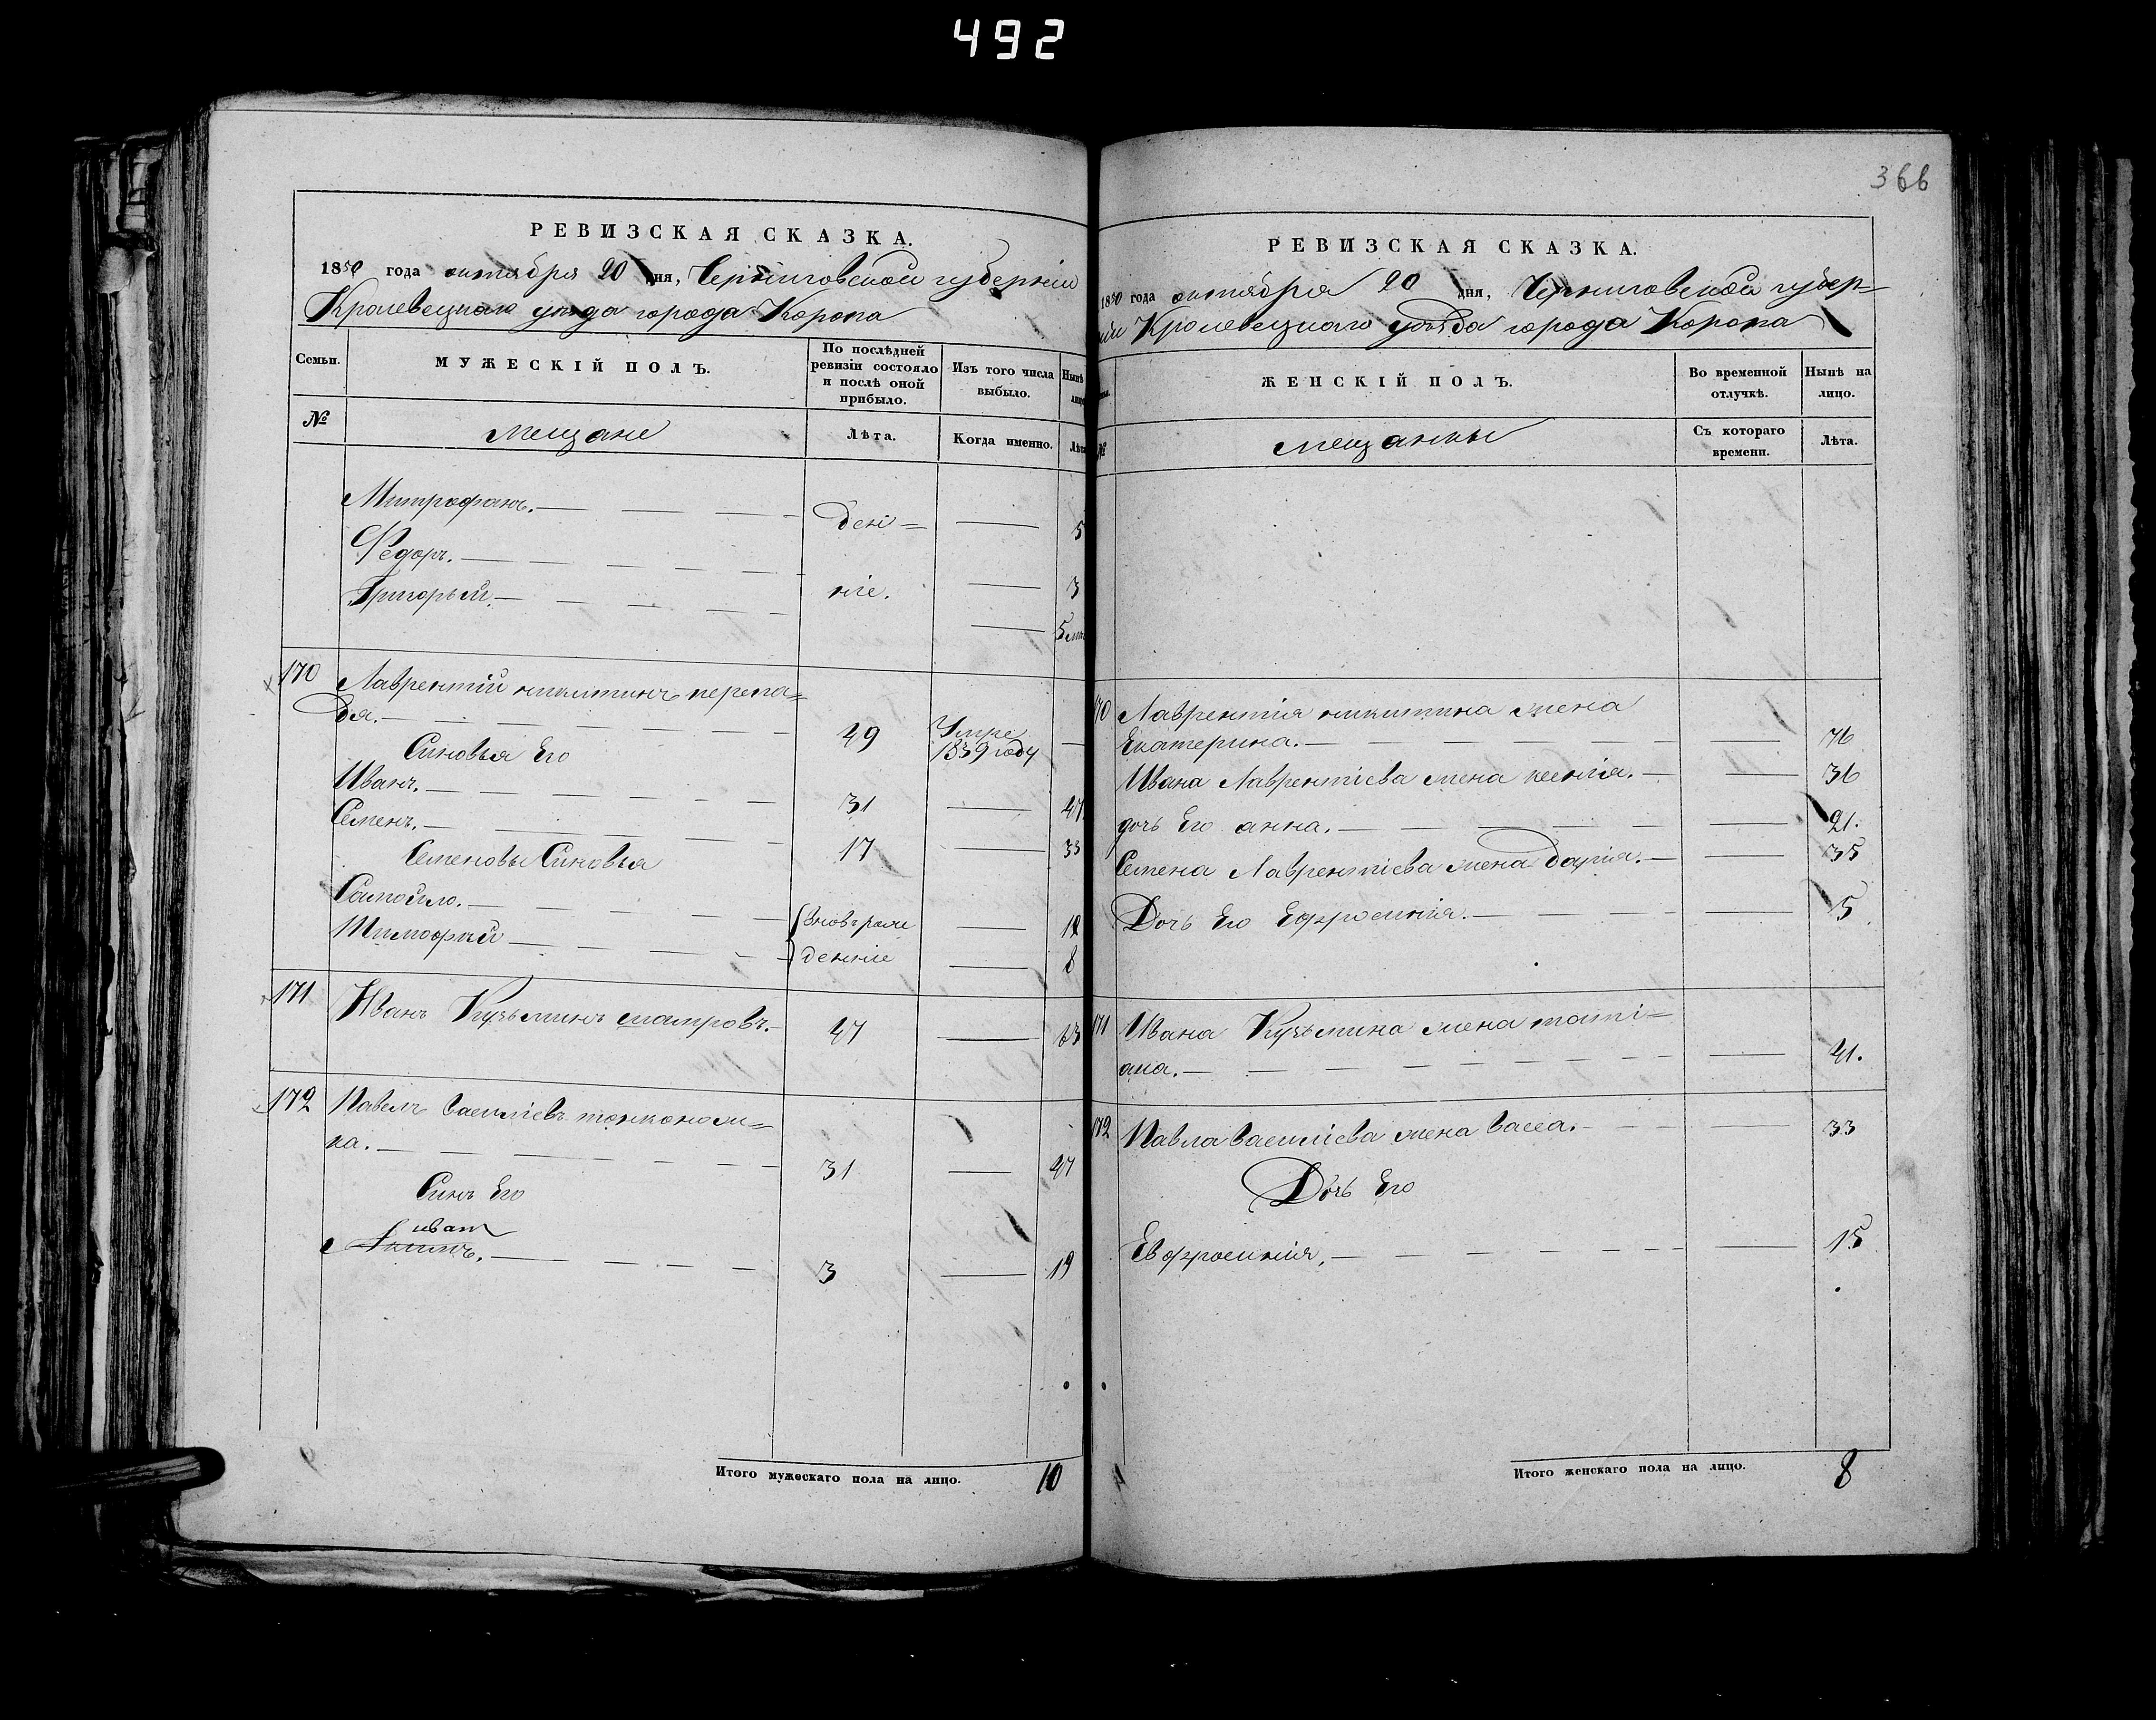 492
366
РЕВИЗСКАЯ СКАЗКА.
1850 года октября 20 дня, Черниговской губерніи
Кролевецкаго уѣзда города Коропа
Семьи.
МУЖЕСКІЙ ПОЛЪ.
По послѣдней
ревизіи состояло
и послѣ оной
прибыло.
Изъ того числа
выбыло.
Нынѣ
лицо
№
мещане
Лѣта.
Когда именно.
Лѣта
Митрофанъ.
дені=
5
Федоръ.
ніе.
3
Григорый.
5
170 Лаврентій никитинъ перепа=
дя.
49 Умре
1839 году
Синовья Его
Иванъ. 31 47
Семенъ. 17 33
Семеновы Синовья
Самойло. вновь рож 12
Тимофей денніе 8
171 Иванъ Кузьминъ шапровъ. 47 63
172 Павелъ Василіевъ тонконож=
ка. 31 47
Синъ Его
иван
Акимъ. 3 19
Итого мужескаго пола на лицо. 10
РЕВИЗСКАЯ СКАЗКА.
1850 года октября 20 дня, Черниговской губер=
ніи Кролевецкаго уѣзда города Коропа
ЖЕНСКІЙ ПОЛЪ.
Во временной
отлучкѣ.
Нынѣ на
лицо.
№
мещанки
Съ котораго
времени.
Лѣта.
170 Лаврентія никитина жена
Екатерина. 76
Ивана Лаврентіева жена ксенія. 36
дочь Его анна. 21.
Семена Лаврентіева жена дарія. 35
Дочь Его Ефросинія. 5
171 Ивана Кузьмина жена таті=
ана. 41.
172 Павла Василіева жена Васса. 33
Дочь Его
Евфросинія. 15
Итого женскаго пола на лицо. 8